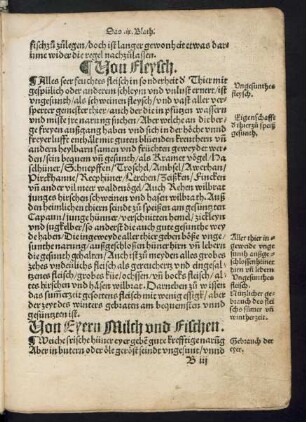 Das .iij. Blath.
fisch zů zůlegen / doch ist langer gewonheit etwas dar-
inne wider die regel nachzůlassen.
¶Von Fleysch.
¶Alles seer feuchtes fleisch in sonderheit d Thier mit
gespülich oder anderem schleym vnd vnlust ernert / ist
vngesunth / als schweinen fleysch / vnd vast aller
genester thier / auch der die in pfützen wassern
vnd müste ire narung sůchen / Aber welche an die ber-
ge freyen außgang haben vnd sich in der höche vnnd
freyer lufft enthalten mit guten blüenden kreuthern vnd
andern dorbarlichem samen vnd früchten geweydet wer-
den / sein bequem vnd gesunth / als Kramet vögel / Ha-
selhüner / Schnepffen / Troschel / Amsel / Awerhan /
Pirckhann / Rephüner / Lerchen / Zeißken / Fincken
vnd ander vil mer waldenögel / Auch Rehen wilbrat
junges hirschen schweinen vnd hasen wilbrath. Auß
den heimlichen thiern seindt zů speißen am gesunsten
Capaun / junge hüner / verschnitten hend / zicklein
vnd jugkelber / so anderst die amch gute gesunthe wey-
de haben / Die ingeweyde aller thier geben böße vnge-
sunthe narung / außgeschloßen hüner hirn vnd lebern
die gesunth gehalten / Auch ist zů meyden alles grobes
zehes vndeüliche fleisch / als gereücherg vnd eingesal-
tzenes fleisch / grobes küe / ochsen / vnd bocks fleisch / al-
tes hirschen vnd hasen wilbrat. Darneben zů wissen
das sumerzeit gesotens fleisch mit wenig essigk / aber
der zeyt des winters gebraten am bequemsten vnnd
gesunsten ist.
Von Eyern Milch vnd Fischen.
¶Weiche frische hüner eyer gebē gute krefftige narūg
Aber in butern oder öle geröst seindt vngesunt / vnnd
B iij
Vngesunthes
fleysch.
Eigenschafft
d thier zů speiß
gesunth.
Aller thier in-
geweide vnge-
sunth außge-
schloßen hüner
hirn vñ lebern
Vngesunthes
fleisch.
Nutzlicher ge-
brauch des flei-
schs sumer vñ
winther zeit.
Gebrauch der
eyer.